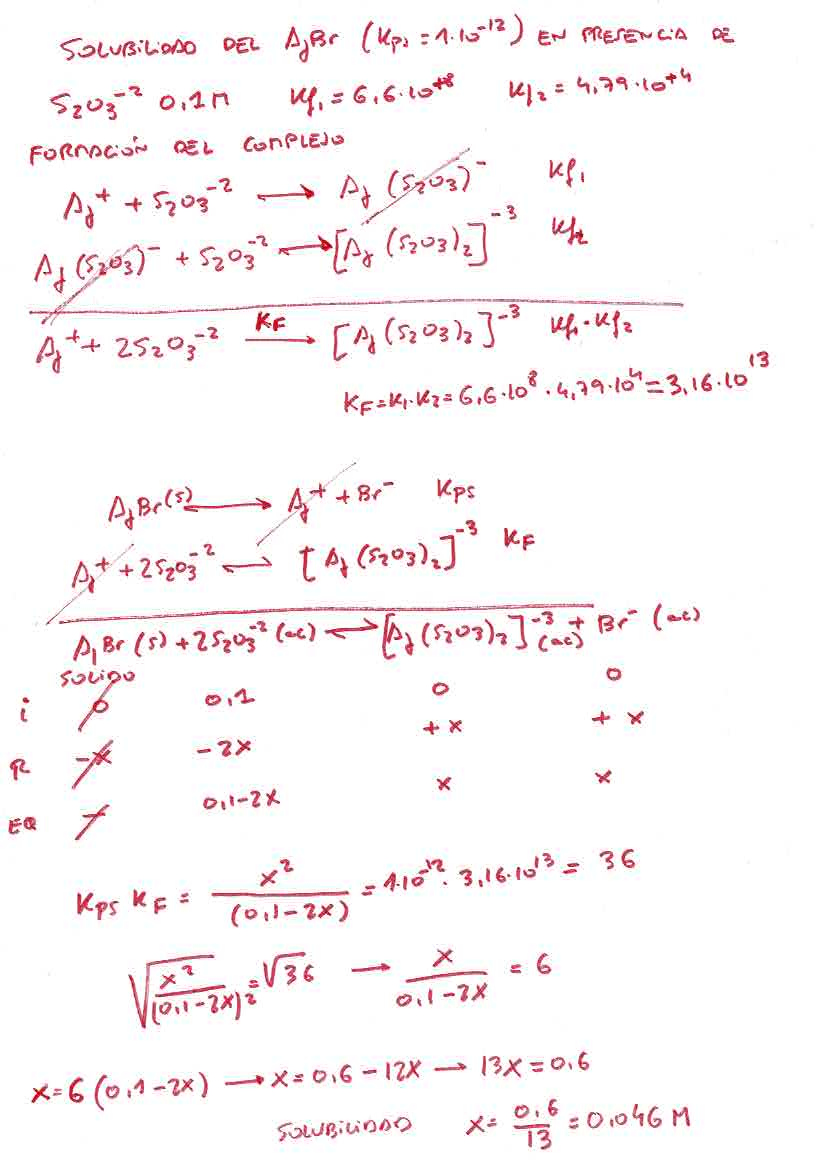 SOLUBILIDAD DEL AgBr (Kps = 1·10⁻¹²) EN PRESENCIA DE
S₂O₃⁻² 0,1M Kf₁ = 6,6·10⁺⁸ Kf₂ = 4,79·10⁺⁴
FORMACIÓN DEL COMPLEJO
Ag⁺ + S₂O₃⁻² → Ag (S₂O₃)⁻ Kf₁
Ag (S₂O₃)⁻ + S₂O₃⁻² ↔ [Ag (S₂O₃)₂]⁻³ Kf₂
Ag⁺ + 2S₂O₃⁻² KF → [Ag (S₂O₃)₂]⁻³ Kf₁·Kf₂
KF = K₁·K₂ = 6,6·10⁸ · 4,79·10⁴ = 3,16·10¹³
AgBr(s) ↔ Ag⁺ + Br⁻ Kps
Ag⁺ + 2S₂O₃⁻² ↔ [Ag (S₂O₃)₂]⁻³ KF
AgBr (s) + 2S₂O₃⁻² (ac) ↔ [Ag (S₂O₃)₂]⁻³ (ac) + Br⁻ (ac)
SOLIDO
i 0 0,1 0 0
R -x -2x +x +x
EQ - 0,1-2x x x
Kps KF = x² / (0,1-2x) = 1·10⁻¹² · 3,16·10¹³ = 36
√(x² / (0,1-2x)²) = √36 → x / (0,1-2x) = 6
x = 6 (0,1-2x) → x = 0,6 - 12x → 13x = 0,6
SOLUBILIDAD x = 0,6 / 13 = 0,046 M